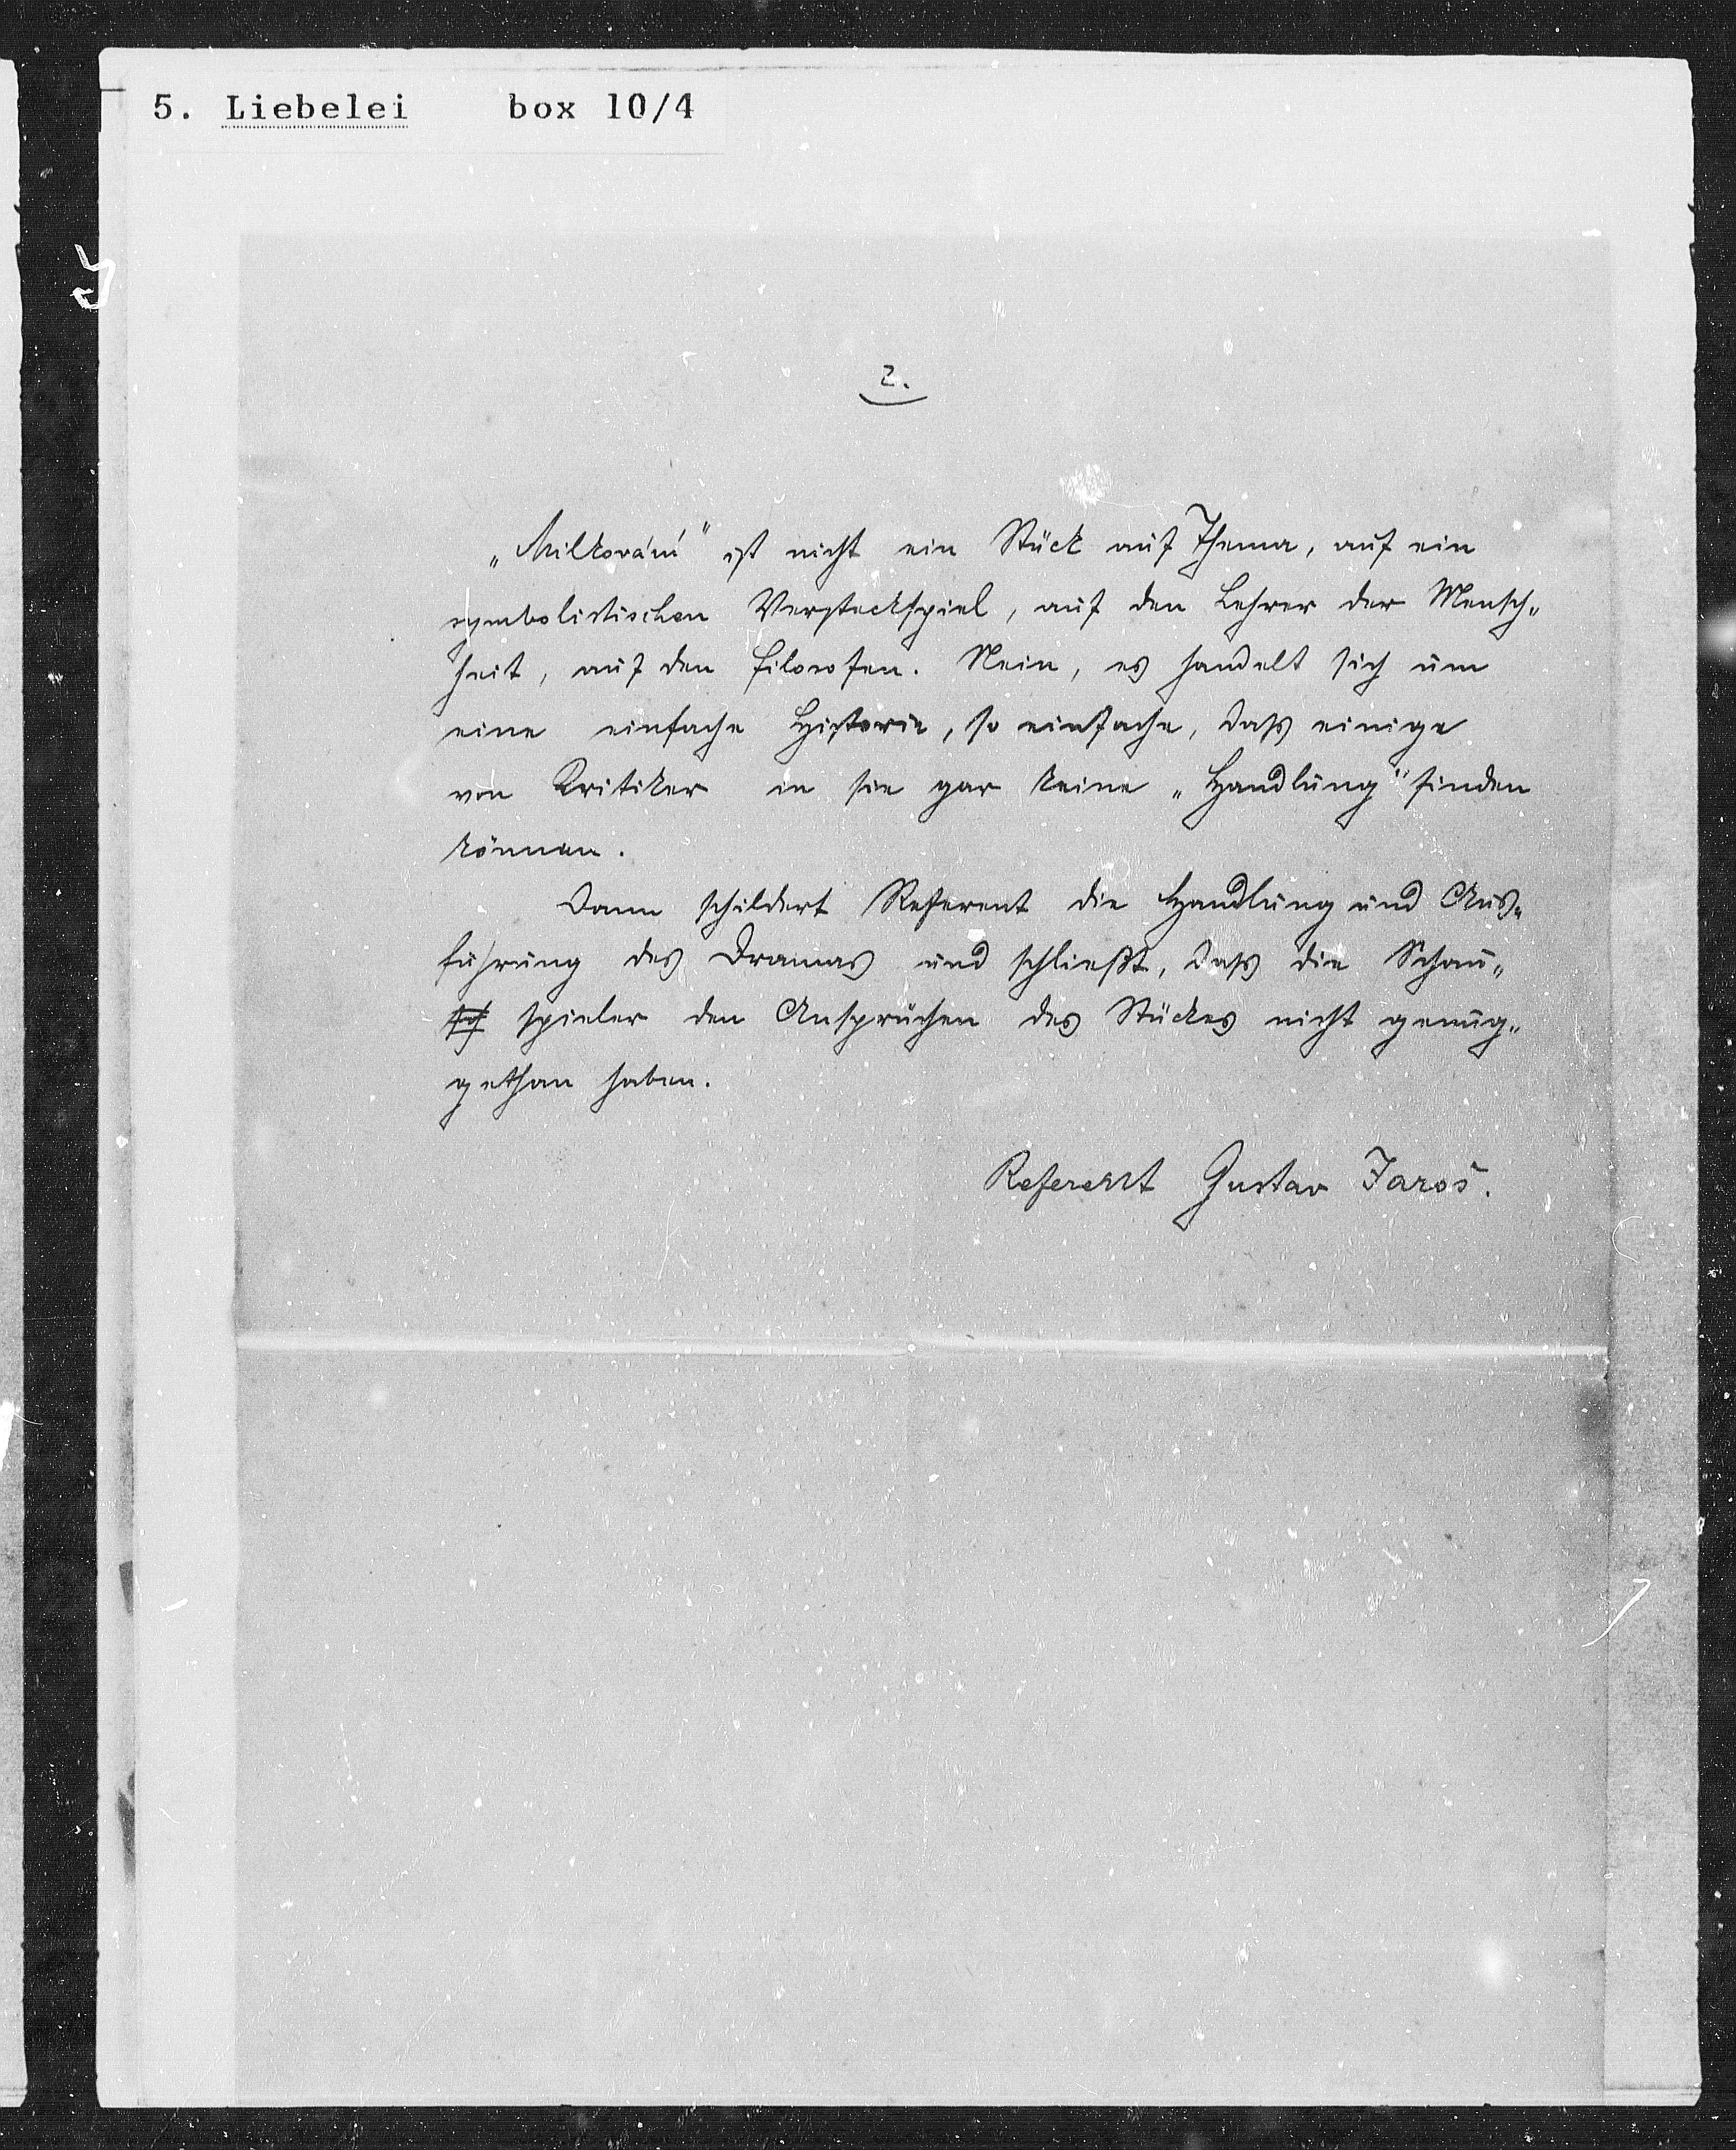 5. Liebelei box 10/4
2.
„Milkování“ ist nicht ein Stück auf Thema, auf ein
symbolistischen Versteckspiel, auf den Lehrer der Mensch-
heit, auf den Filosofen. Nein, es handelt sich um
eine einfache Historie, so einfache, dass einige
von Kritiker in sie gar keine „Handlung“ finden
können.
Dann schildert Referent die Handlung und Aus-
führung des Dramas und schließt, dass die Schau-
spieler den Ansprüchen des Stückes nicht genug-
gethan haben.
Referent Gustav Jaroš.